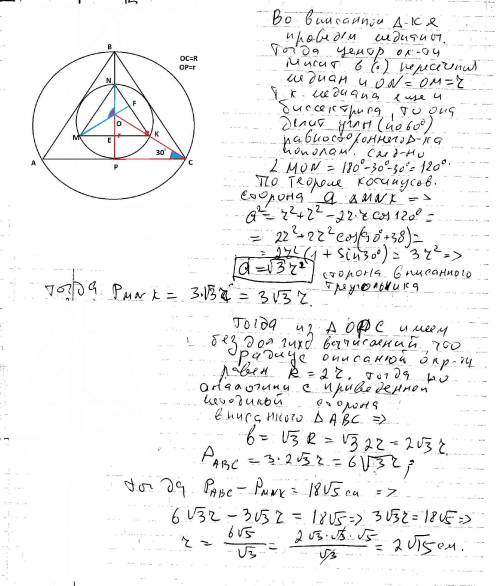 Во вписанном Δ-ке
проведем медианы.
Тогда центр ок-ти
лежит в (.) пересечения
медиан и ON = OM = r
Т.к. медиана еще и
биссектриса, то она
делит углы (по 60°)
равностороннего Δ-ка
пополам. след-но
∠MON = 180°-30°-30° = 120°.
По теореме косинусов.
сторона a ΔMNK =>
a² = r² + r² - 2r·r cos120° =
= 2r² + 2r² cos(90°+30) =
= 2r² (1 + sin30°) = 3r² =>
a = √3r²
сторона вписанного
треугольника
тогда P_MNK = 3·√3r = 3√3r.
Тогда из ΔOPC имеем
без долгих вычислений, что
радиус описанной окр-ти
равен R = 2r. тогда по
аналогии с приведенной
методикой сторона
вписанного ΔABC =>
b = √3 R = √3 2r = 2√3r
P_ABC = 3·2√3r = 6√3r;
тогда P_ABC - P_MNK = 18√5 см =>
6√3r - 3√3r = 18√5 => 3√3r = 18√5 =>
r = 6√5/√3 = 2√3·√3·√5/√3 = 2√15 см.
B
OC=R
OP=r
N
F
O
M
E
r
K
30°
A
P
C